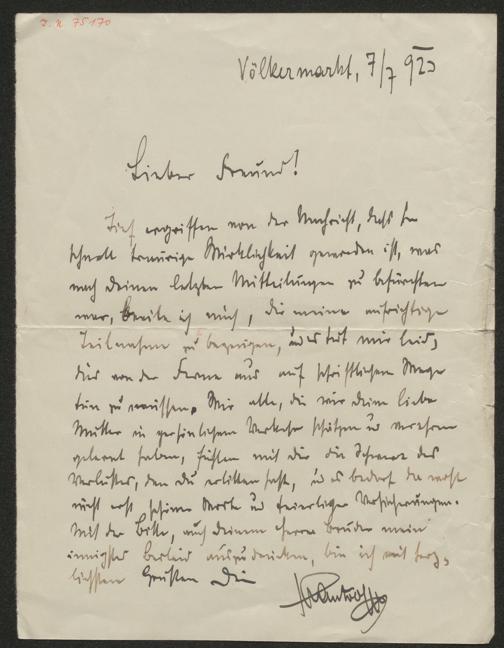 J. N. 75170
Völkermarkt, 7/7 925
Lieber Freund!
Tief ergriffen von der Nachricht, daß so
schnell traurige Wirklichkeit geworden ist, was
nach deinen letzten Mitteilungen zu befürchten
war, beeile ich mich, dir meine aufrichtige
Teilnahme zu bezeugen, und es tut mir leid,
dies von der Ferne aus auf schriftlichem Wege
tun zu müssen. Wir alle, die wir deine liebe
Mutter in persönlichem Verkehr schätzen u verehren
gelernt haben, fühlen mit dir die Schwere des
Verlustes, den du erlitten hast, u es bedarf da wohl
nicht erst schöner Worte u feierlicher Versicherungen.
Mit der Bitte, auch deinem Herrn Bruder mein
innigstes Beileid auszudrücken, bin ich mit herz-
lichsten Grüßen Dein